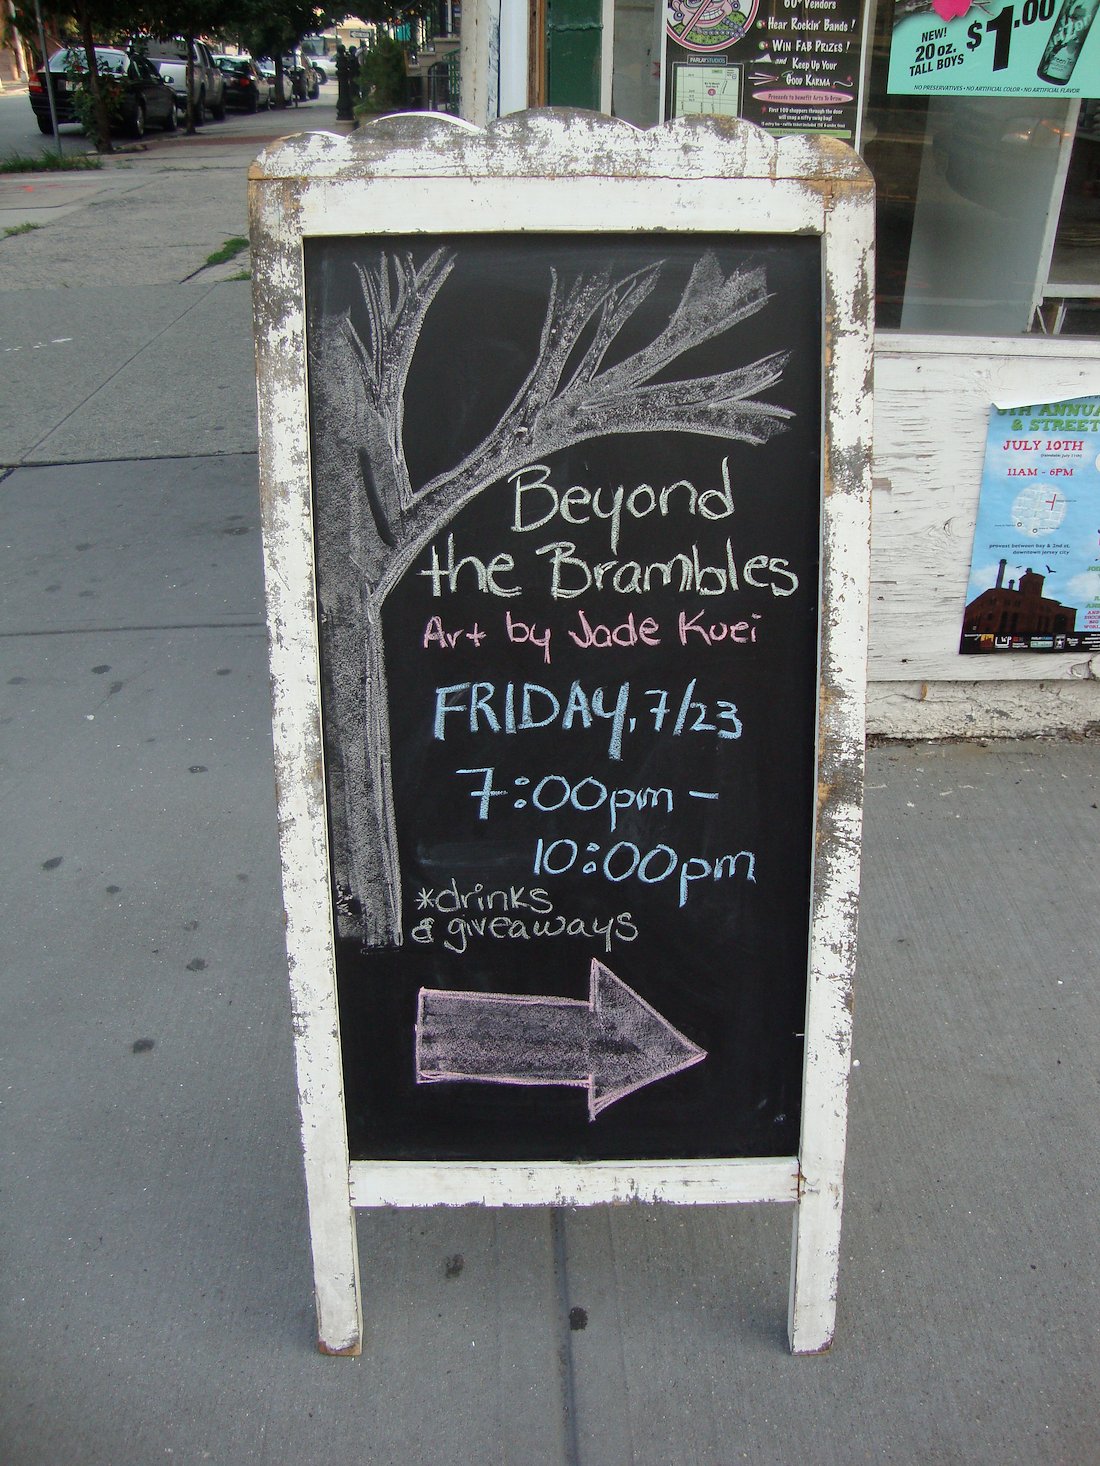 60+ Vendors
Hear Rockin' Bands!
Win FAB Prizes!
and Keep Up Your
Good Karma
Proceeds to benefit Arts To Grow
First 100 shoppers through the door
PARLAY STUDIOS
NEW!
20 oz.
TALL BOYS
$1.00
NO PRESERVATIVES • NO ARTIFICIAL COLOR • NO ARTIFICIAL FLAVOR
Beyond
the Brambles
Art by Jade Kuei
FRIDAY, 7/23
7:00pm –
10:00pm
*drinks
& giveaways
ANNUA
& STREET
JULY 10TH
(raindate: july 11th)
11AM - 6PM
provost between bay & 2nd st.
downtown jersey city